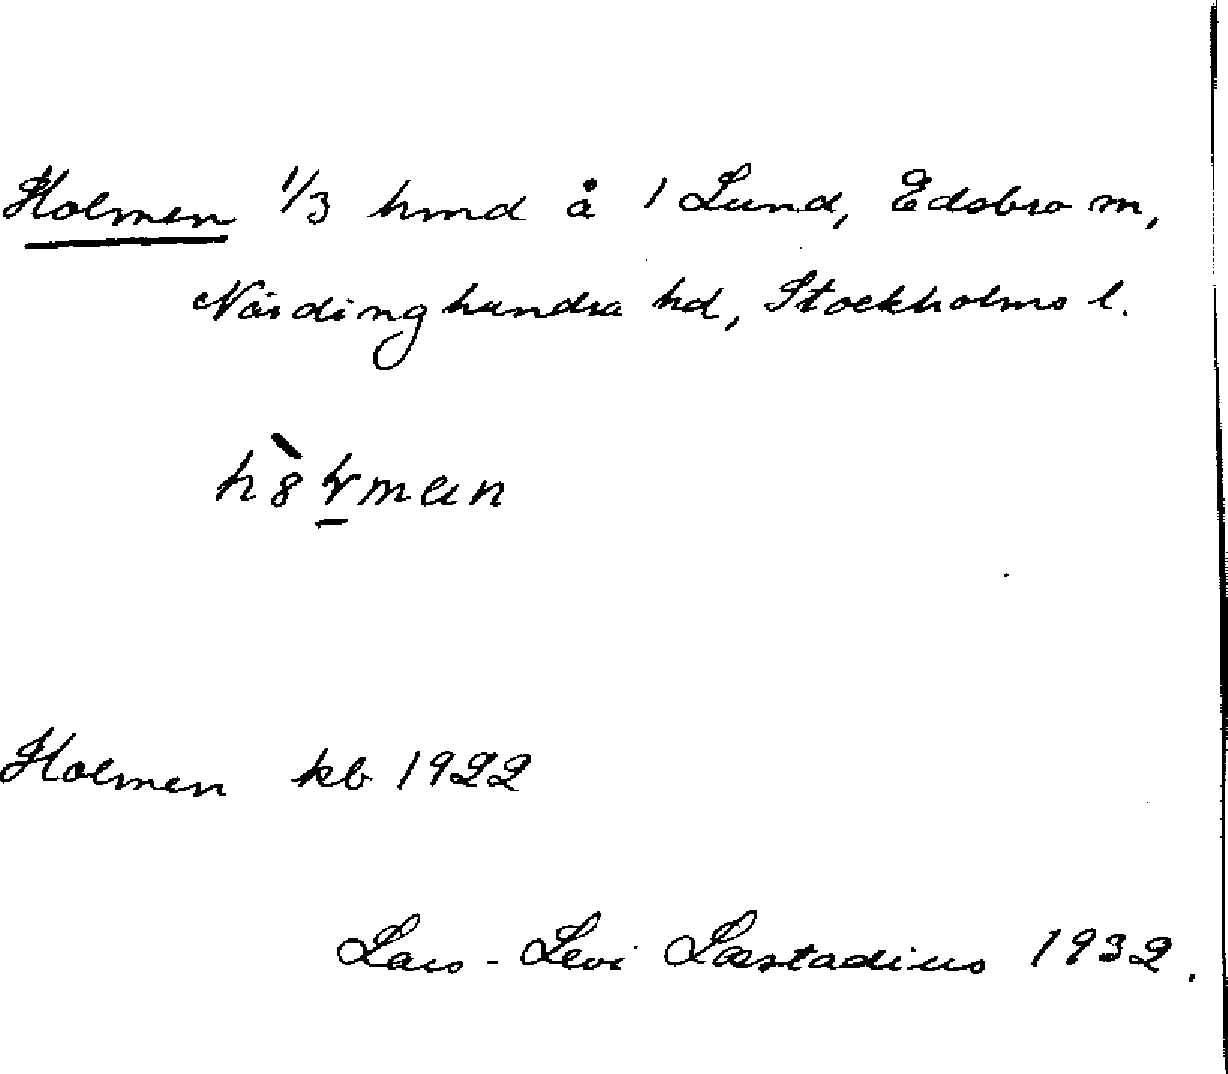 Holmen 1/3 hmd å 1 Lund, Edsbro sn,
Närdinghundra hd, Stockholms l.
Holmen kb 1922
Lars-Levi Læstadius 1932.